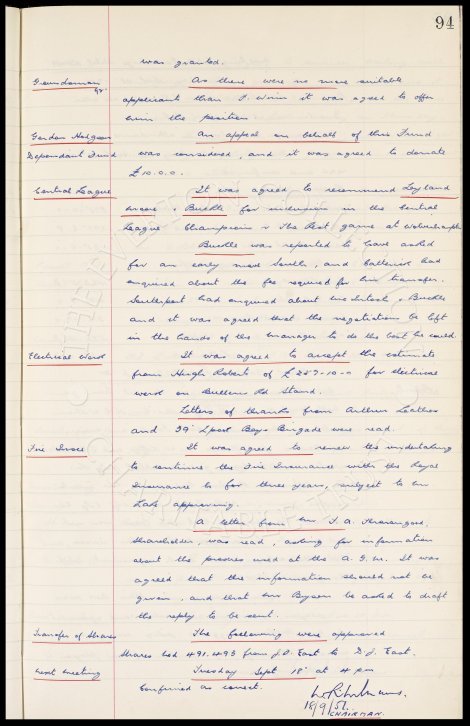 94
was granted.
Groundsman As there were no more suitable
applicant than J. it was agreed to offer
him the position.
Gordon Hodgson An appeal on behalf of this Fund
Dependant Fund was considered, and it was agreed to donate
£10.0.0.
Central League It was agreed to recommend Leyland
Moore & Buckle for inclusion in the Central
League Champions v The Rest game at Wolverhampton
Buckle was reported to have asked
for an early move South, and had
enquired about the fee required for his transfer.
Southport had enquired about McIntosh & Buckle
and it was agreed that the negotiations be left
in the hands of the manager to do the best he could.
Electrical Work It was agreed to accept the estimate
from Hugh Roberts of £257-10-0 for electrical
work on Bullens Rd Stand.
Letters of thanks from Arthur
and 39th L'pool Boys Brigade were read.
Fire Insce It was agreed to renew the undertaking
to continue the Fire Insurance with the Royal
Insurance Co for three years, subject to Mr
approving.
A letter from Mr T.A.
shareholder, was read, asking for information
about the proxies used at the A.G.M. It was
agreed that the information should not be
given, and that Mr be asked to draft
the reply to be sent.
Transfer of Shares The following were approved
Shares Nos 491.493 from J.D. East to S.J. East.
Next meeting Tuesday Sept 18th at 4 pm
Confirmed as correct.
18/9/51.
CHAIRMAN.